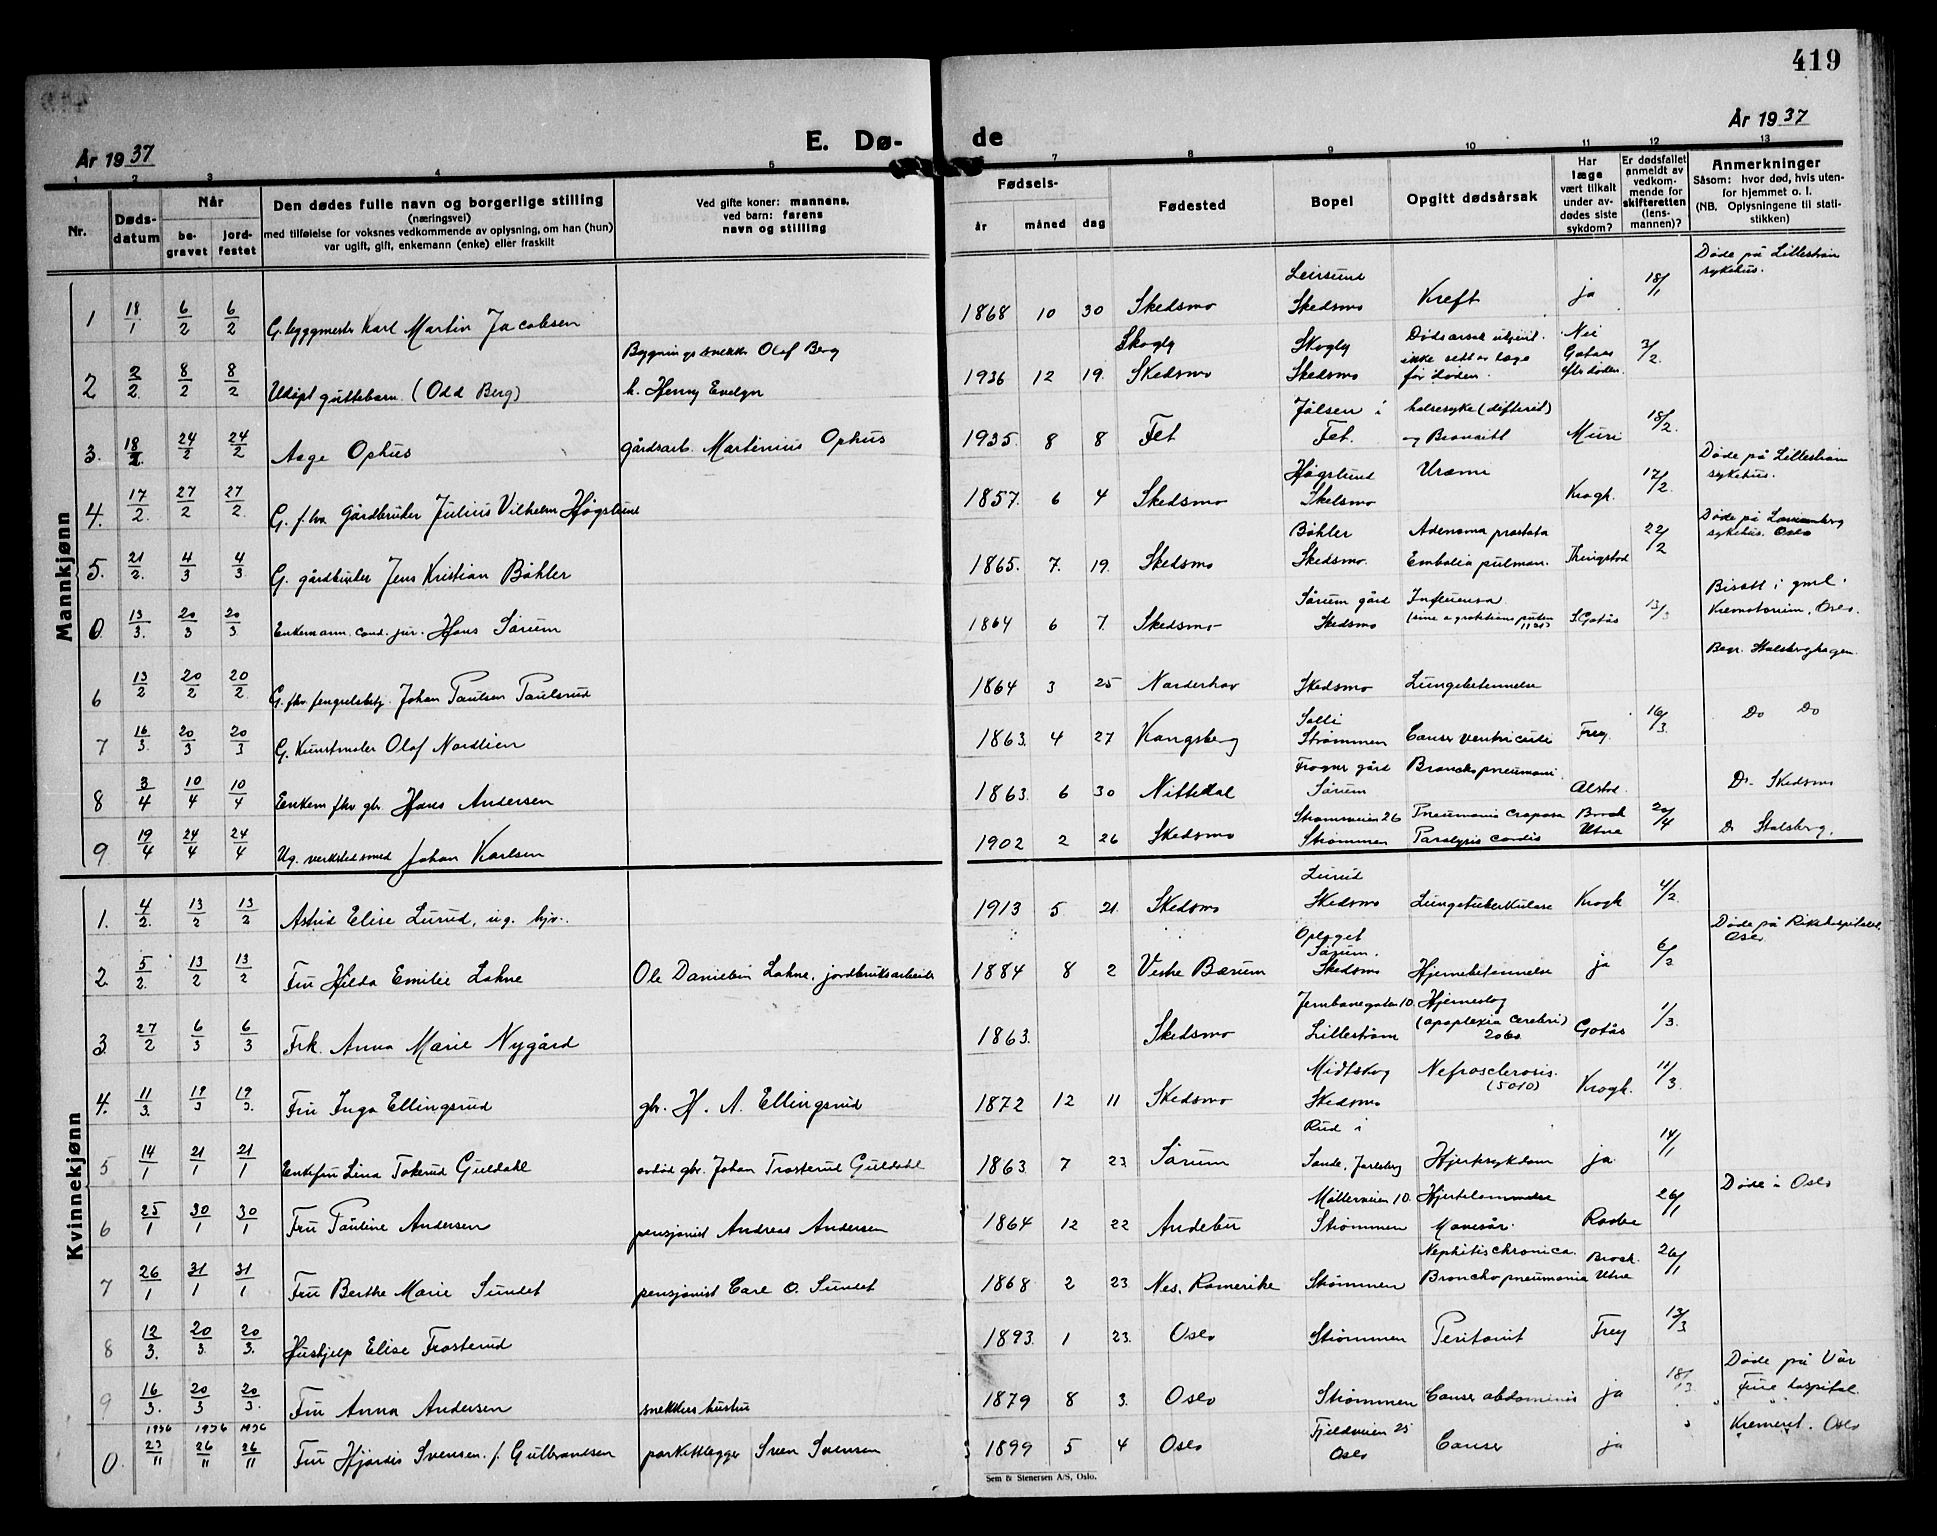 419
År 1937
E. Dø-
de
År 1937
1 2 3 4 5 7 8 9 10 11 12 13
Nr.
Døds-
datum
Når
be-
gravet
jord-
festet
Den dødes fulle navn og borgerlige stilling
(næringsvei)
med tilføielse for voksnes vedkommende av oplysning, om han (hun)
var ugift, gift, enkemann (enke) eller fraskilt
Ved gifte koner: mannens,
ved barn: farens
navn og stilling
Fødsels-
år måned dag
Fødested
Bopel
Opgitt dødsårsak
Har
læge
vært tilkalt
under av-
dødes siste
sykdom?
Er dødsfallet
anmeldt av
vedkom-
mende for
skifteretten
(lens-
mannen)?
Anmerkninger
Såsom: hvor død, hvis uten-
for hjemmet o. l.
(NB. Oplysningene til stati-
stikken)
Mannkjønn
1 18/1 6/2 6/2 G. byggmester Karl Martin Jacobsen 1868 10 30 Skedsmo Leirsund Skedsmo Kreft ja 18/1 Døde på Lillestrøm sykehus.
2 2/2 8/2 8/2 Udøpt guttebarn (Odd Berg) Bygningssnekker Olaf Berg h. Henny Evelyn 1936 12 19. Skogly Skedsmo Skogly Skedsmo ikke sett av læge før døden. Nei Gotaas efter døden. 3/2.
3. 18/2 24/2 24/2 Aage Ophus gårdsarb. Martinius Ophus 1935. 8 8 Fet Jølsen i Fet. halsesyke (difterit) og Bronkitt Muri 18/2.
4. 17/2 27/2 27/2 G. f. hv. Gårdbruker Julius Vilhelm Høgslund 1857. 6 4 Skedsmo Høgslund Skedsmo Uræmi Krogh. 17/2. Døde på Lillestrøm sykehus.
5. 21/2 4/3 4/3 G. gårdbruker Jens Kristian Bøhler 1865. 7. 19. Skedsmo Bøhler Skedsmo. Adenoma prostata Embolia pulmon. Ringstad 22/2 Døde på Lovisenberg sykehus. Oslo
0 13/3. 20/3 20/3. Enkemann, cand. jur. Hans Sørum 1864 6 7. Skedsmo Sørum gård Skedsmo Influensa S. Gotås 13/3 Bisatt i gml. Krematorium, Oslo.
6 13/2 20/2 20/2. G. fhv. fengselsbetj. Johan Paulsen Paulsrud 1864 3 25 Norderhov Skedsmo Lungebetennelse Begr. Stalsberghagen.
7 16/3. 20/3 20/3 G. Kunstmaler Olaf Nordlien 1863. 4 27 Kongsberg Salli Strømmen Cancer ventriculi Frey. 16/3. Do Do
8 3/4 10/4 10/4 Enkem. fhv. gbr. Hans Andersen 1863. 6 30 Nittedal Frogner gård Sørum Bronchopneumoni. Alstad. Do. Skedsmo
9 19/4 24/4 24/4 Ug. verkstedsmed Johan Karlsen 1902 2 26 Skedsmo Strømsveien 26 Strømmen Pneumonia croposa Paralysis cordis Broch Utne 20/4 Do Stalsberg.
Kvinnekjønn
1. 4/2. 13/2 13/2 Astrid Elise Lurud, ug. hjv. 1913 5 21 Skedsmo Lurud Skedsmo Lungetuberkulose Krogh 4/2.
2. 5/2. 13/2 13/2 Fru Hilda Emilie Lahne Ole Danielsen Lahne, jordbruksarbeider 1884 8 2 Vestre Bærum Sørum. Skedsmo Hjernebetennelse ja 6/2 Døde på Rikshospitalet, Oslo
3. 27/2 6/3 6/3 Frk. Anna Marie Nygård 1863. Skedsmo Jernbanegaten 10. Lillestrøm Hjerneslag (apoplexia cerebri) Gotås 1/3.
4. 11/3. 19/3 19/3. Fru Inga Ellingsrud gbr. H. A. Ellingsrud 1872 12 11 Skedsmo Midtskog Skedsmo Nefrosclerosis. (5010) Krogh. 11/3.
5 14/1 21/1 21/1 Enkefru Lina Tokerud Guldahl avdød gbr. Johan Trosterud Guldahl 1863. 7 23. Sørum Rud i Sande, Jarlsberg Hjertesykdom ja 14/1
6 25/1 30/1 30/1 Fru Pauline Andersen pensjonist Andreas Andersen 1864 12 22 Andebu Møllerveien 10. Strømmen Hjertelammelse Mavesår. 26/1 Døde i Oslo
7 26/1 31/1 31/1 Fru Berthe Marie Sundet pensjonist Carl O. Sundet 1868 2 23. Nes, Romerike Strømmen Nephitis chronica. Bronchopneumonia Broch. Utne 26/1
8 12/3. 20/3. 20/3. Hushjelp Elise Trosterud 1893. 1 23. Oslo Strømmen Peritonit Frey 13/3
9 16/3. 20/3 20/3. Fru Anna Andersen snekkers hustru 1879 8 3. Oslo Strømmen Cancer abdominis ja 18/3 Døde på Vår Frue hospital.
0. 1936 23/11 1936 26/11 1936 26/11 Fru Hjørdis Svensen f. Gulbrandsen parkettlegger Sven Svensen 1899 5 4 Oslo Fjeldveien 25 Oslo Cancer ja Kremert. Oslo
Sem & Stenersen A/S, Oslo.